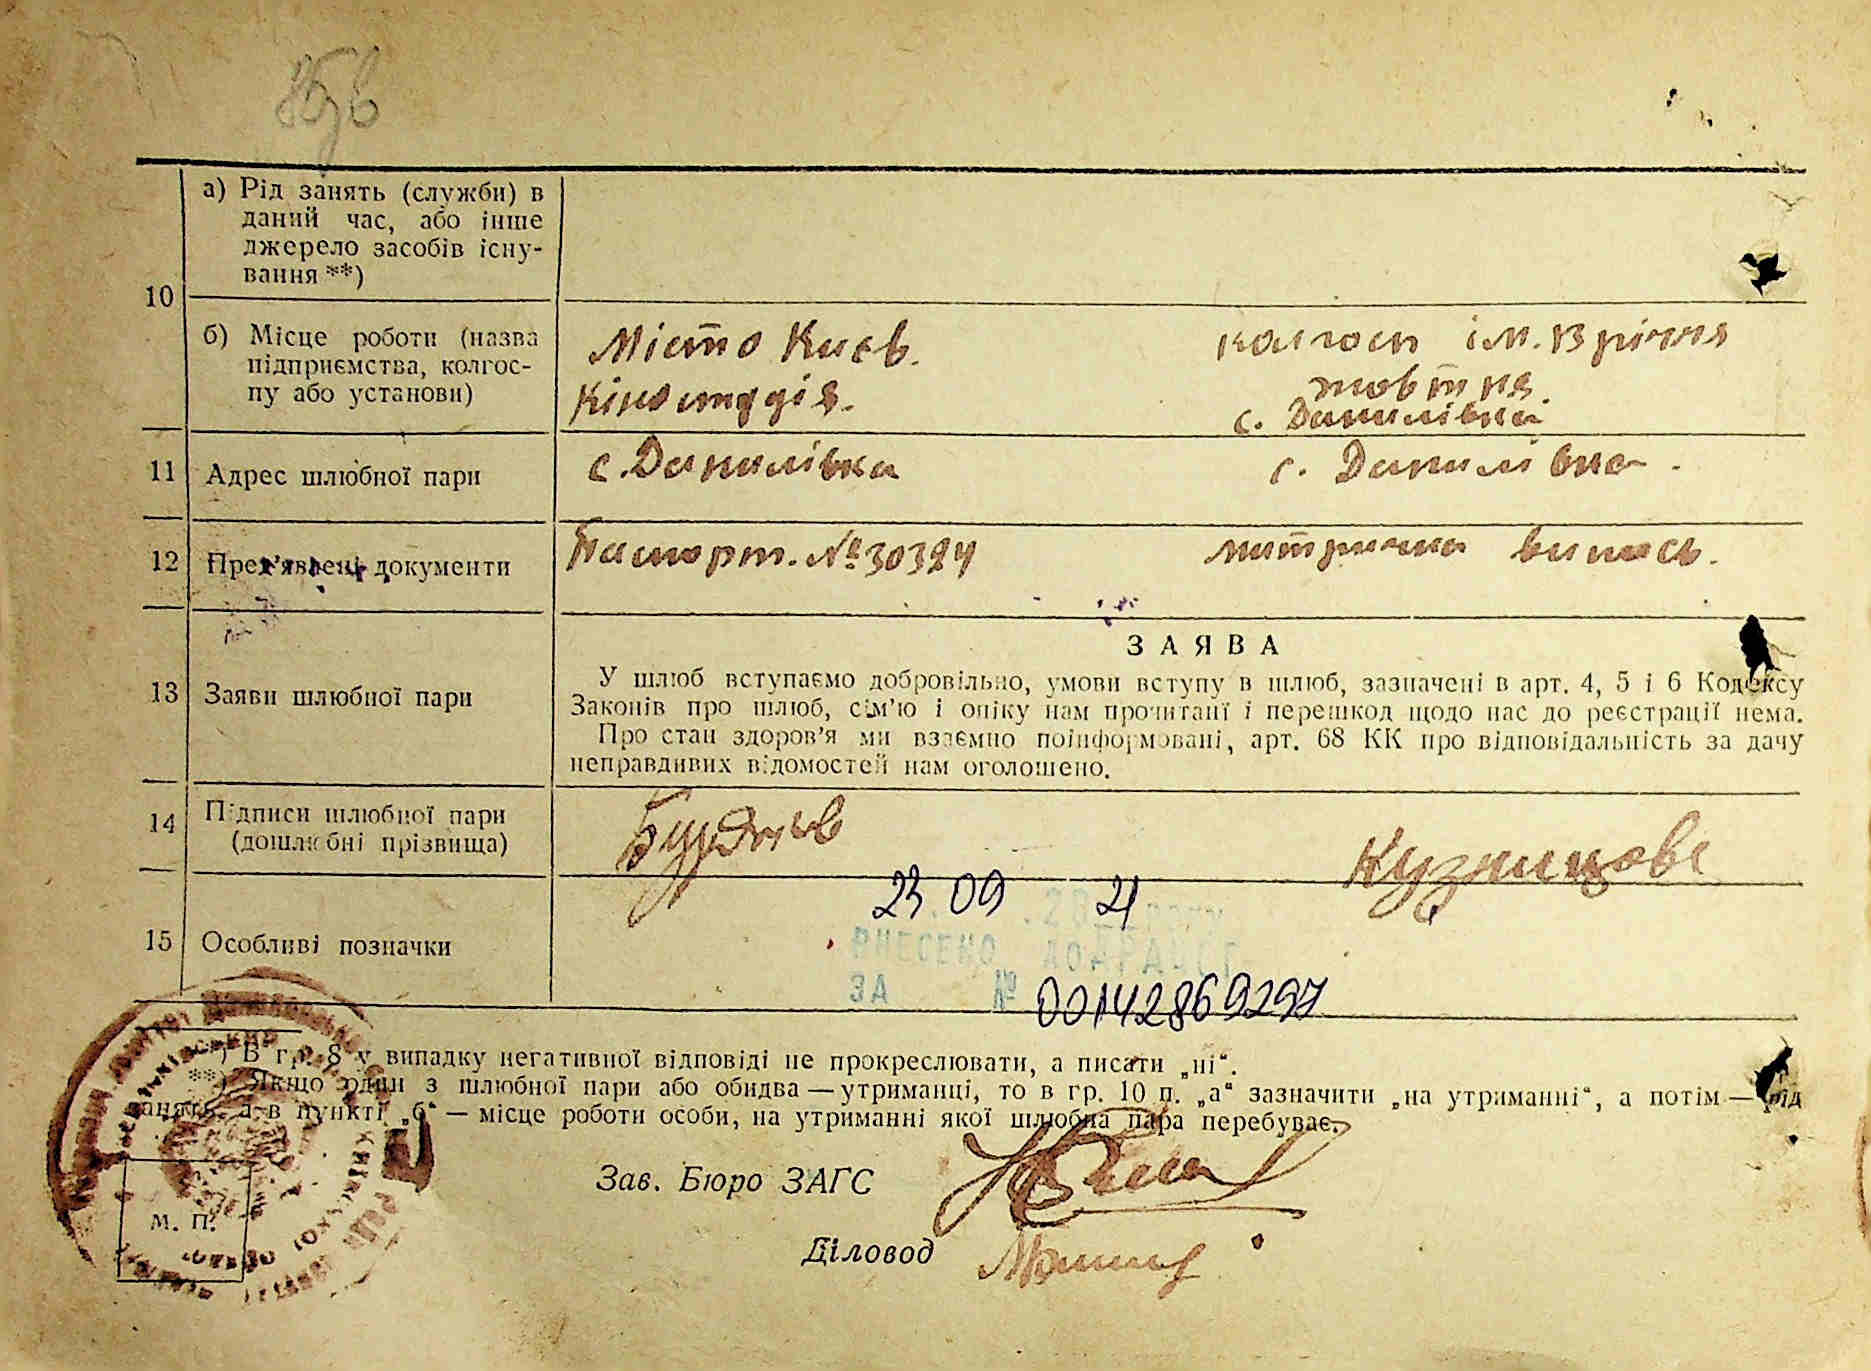 а) Рід занять (служби) в
даний час, або інше
джерело засобів існу-
вання **)
10
б) Місце роботи (назва
підприємства, колгос-
пу або установи)
Місто Київ.
Кіностудія.
колгосп ім. В річчя
жовтня.
с. Данилівка
11 Адрес шлюбної пари
с. Данилівка
с. Данилівка.
12 Пред'явлені документи
Паспорт. №
митрична випись.
13 Заяви шлюбної пари
ЗАЯВА
У шлюб вступаємо добровільно, умови вступу в шлюб, зазначені в арт. 4, 5 і 6 Кодексу
Законів про шлюб, сім'ю і опіку нам прочитані і перешкод щодо нас до реєстрації нема.
Про стан здоров'я ми взаємно поінформовані, арт. 68 КК про відповідальність за дачу
неправдивих відомостей нам оголошено.
14 Підписи шлюбної пари
(дошлюбні прізвища)
Кузницова
23 09 21
15 Особливі позначки
ВНЕСЕНО ДО ДРАЦСГ
ЗА № 00142869297
*) В гр. 8 у випадку негативної відповіді не прокреслювати, а писати „ні“.
**) Якщо один з шлюбної пари або обидва — утриманці, то в гр. 10 п. „а“ зазначити „на утриманні“, а потім — рід
занять, а в пункті „б“ — місце роботи особи, на утриманні якої шлюбна пара перебуває.
Зав. Бюро ЗАГС
М. П.
Діловод